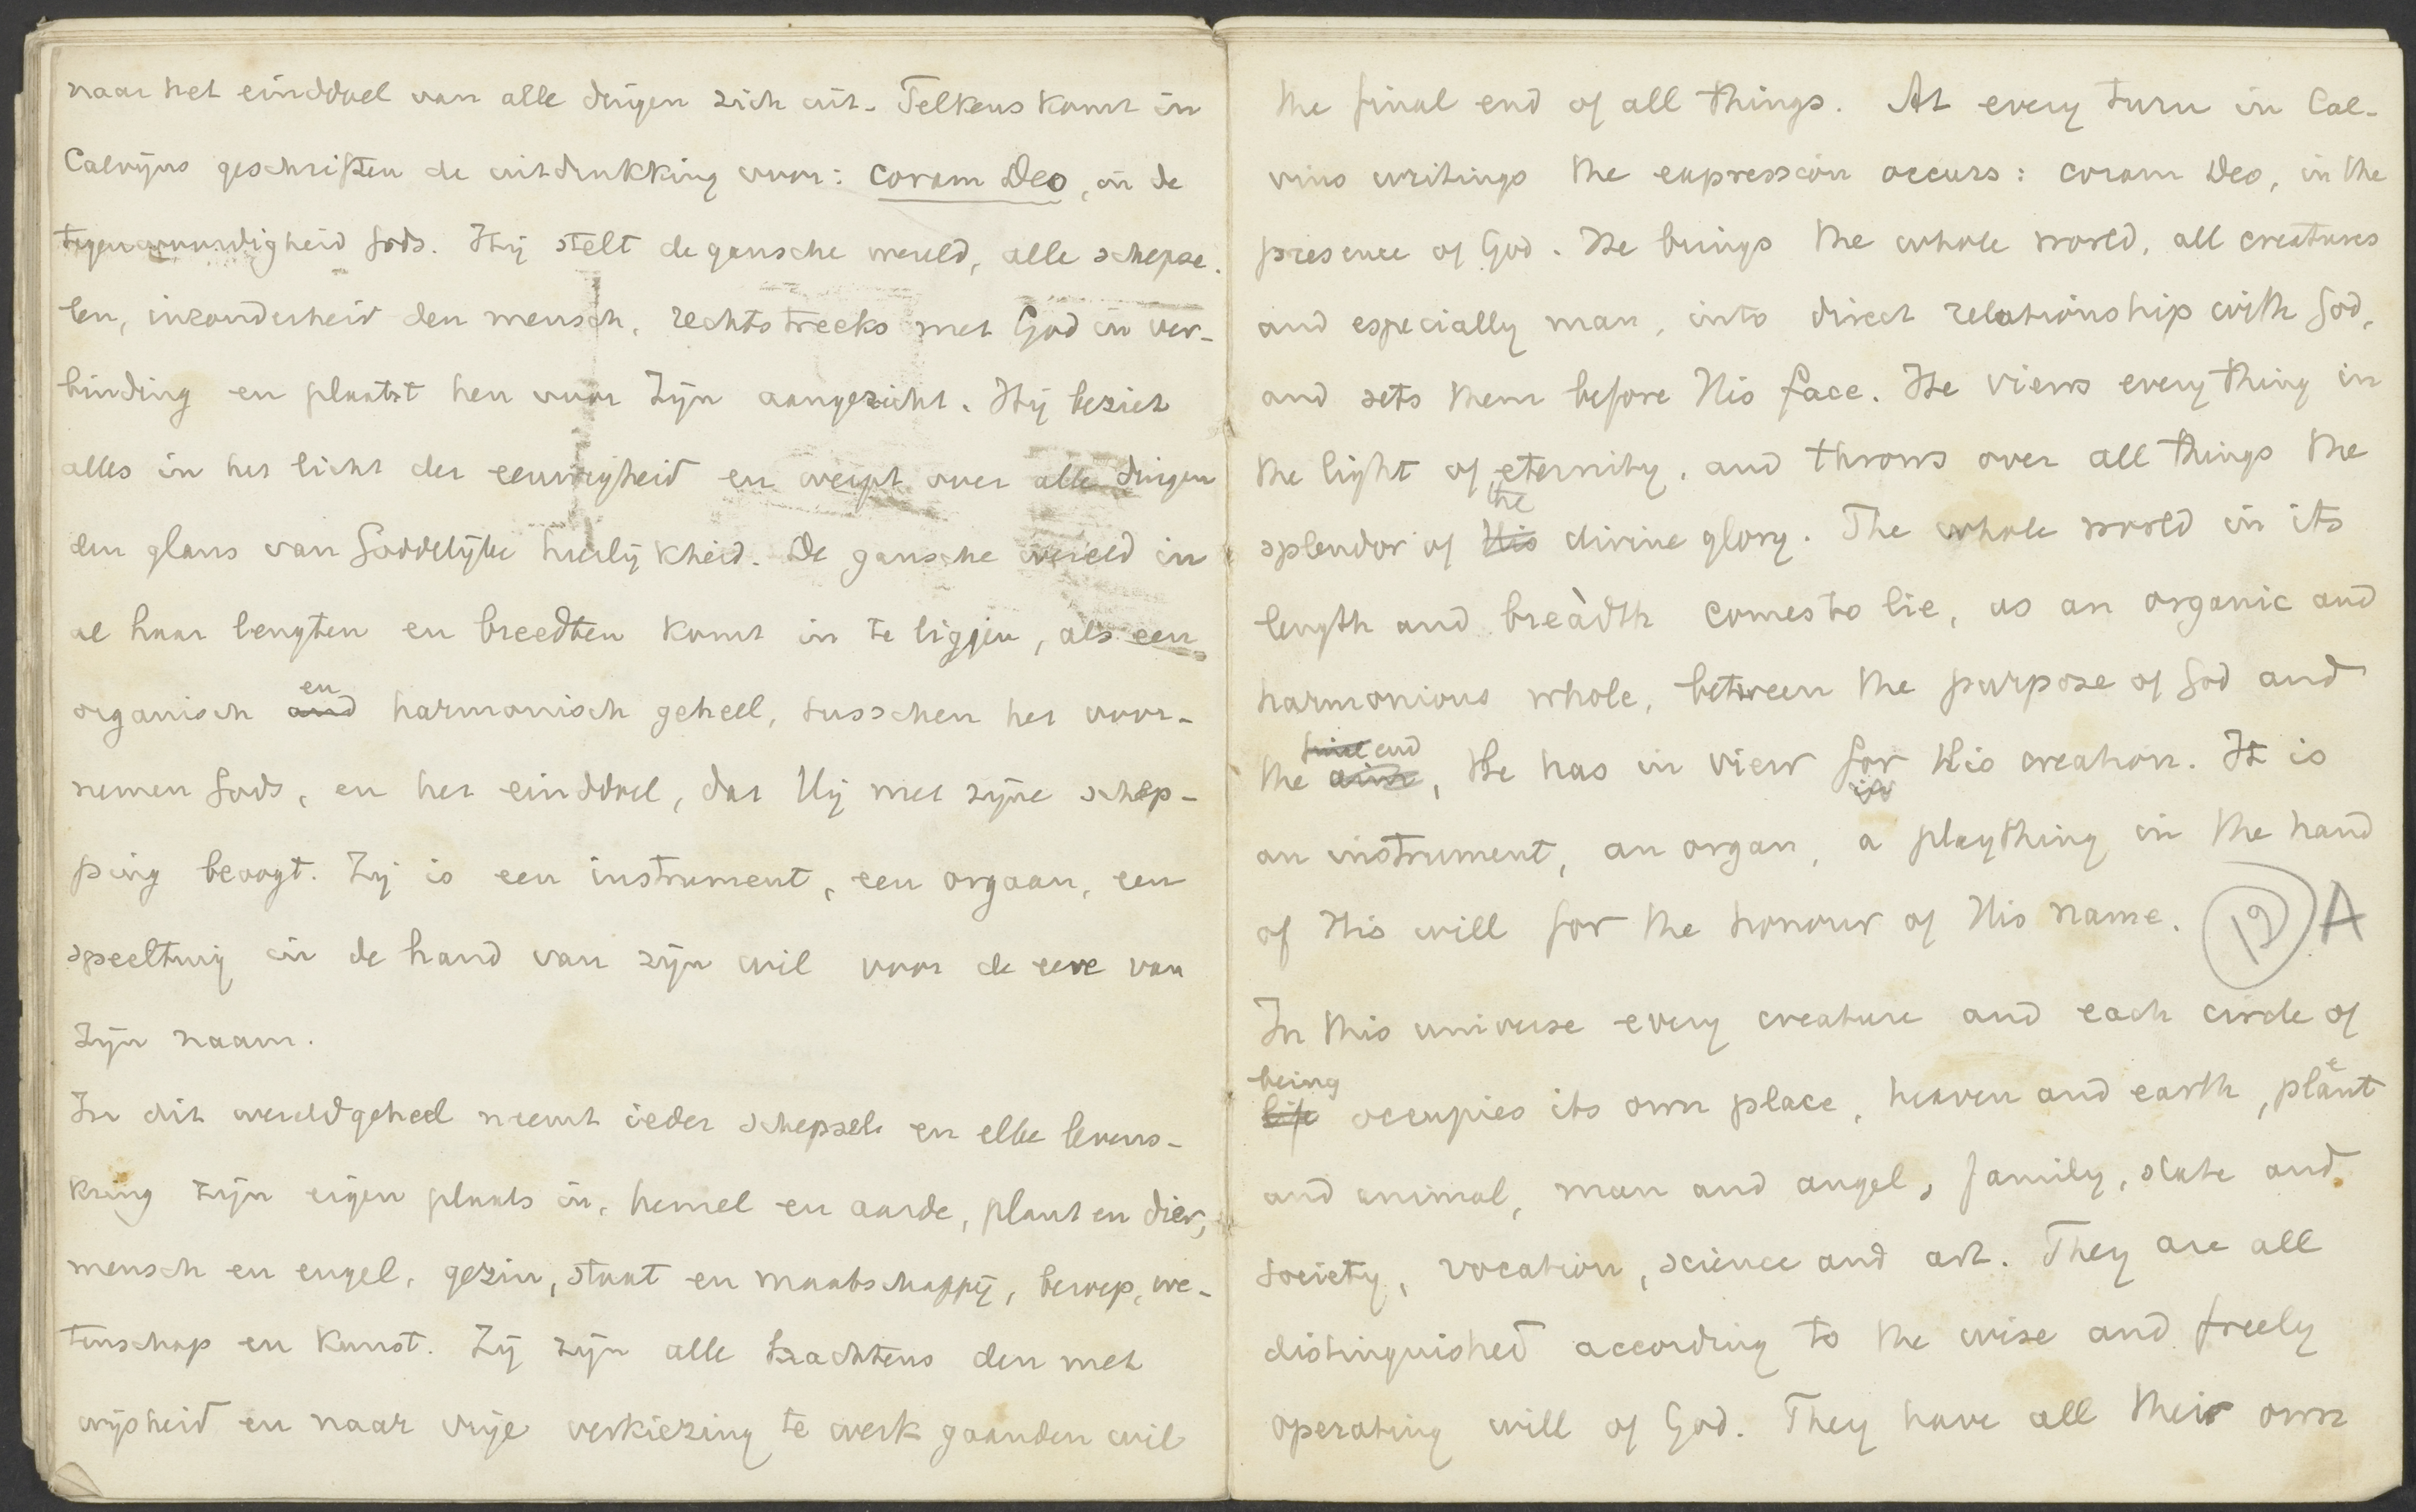 naar het einddoel van alle dingen zich uit. Telkens komt in
Calvijns geschriften de uitdrukking voor: coram Deo, in de
tegenwoordigheid Gods. Hij stelt de gansche wereld, alle schepse-
len, inzonderheid den mensch, rechtstreeks met God in ver-
binding en plaatst hen voor Zijn aangezicht. Hij beziet
alles in het licht der eeuwigheid en werpt over alle dingen
den glans van Goddelijke heerlijkheid. De gansche wereld in
al haar lengten en breedten komt in te liggen, als een
organisch and en harmonisch geheel, tusschen het voor-
nemen Gods, en het einddoel, dat Hij met zijne schep-
ping beoogt. Zij is een instrument, een orgaan, een
speeltuig in de hand van zijn wil voor de eere van
Zijn naam.
In dit wereldgeheel neemt ieder schepsel en elke levens-
kring zijn eigen plaats in, hemel en aarde, plant en dier,
mensch en engel, gezin, staat en maatschappij, beroep, we-
tenschap en kunst. Zij zijn alle krachtens den met
wijsheid en naar vrije verkiezing te werk gaanden wil
the final end of all things. At every turn in Cal-
vins writings the expression occurs: coram Deo, in the
presence of God. He brings the whole world, all creatures
and especially man, into direct relationship with God,
and sets them before His face. He views everything in
the light of eternity, and throws over all things the
splendor of His the divine glory. The whole world in its
length and breadth comes to lie, as an organic and
harmonious whole, between the purpose of God and
the aim end, He has in view for in His creation. It is
an instrument, an organ, a plaything in the hand
of His will for the honour of His name. 12 A
In this universe every creature and each circle of
life being occupies its own place, heaven and earth, plant
and animal, man and angel, family, state and
society, vocation, science and art. They are all
distinguished according to the wise and freely
operating will of God. They have all their own